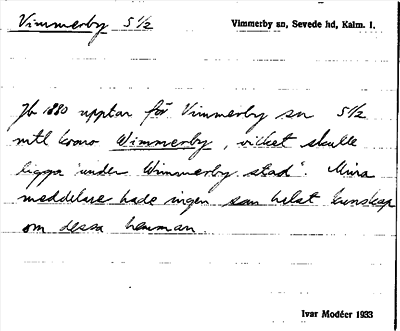 Vimmerby 5 1/2
Vimmerby sn, Sevede hd, Kalm. l.
Jb 1880 upptar för Vimmerby sn 5 1/2
mtl krono Wimmerby, vilket skulle
ligga "under Wimmerby stad". Mina
meddelare hade ingen som helst kunskap
om dessa hemman.
Ivar Modéer 1933